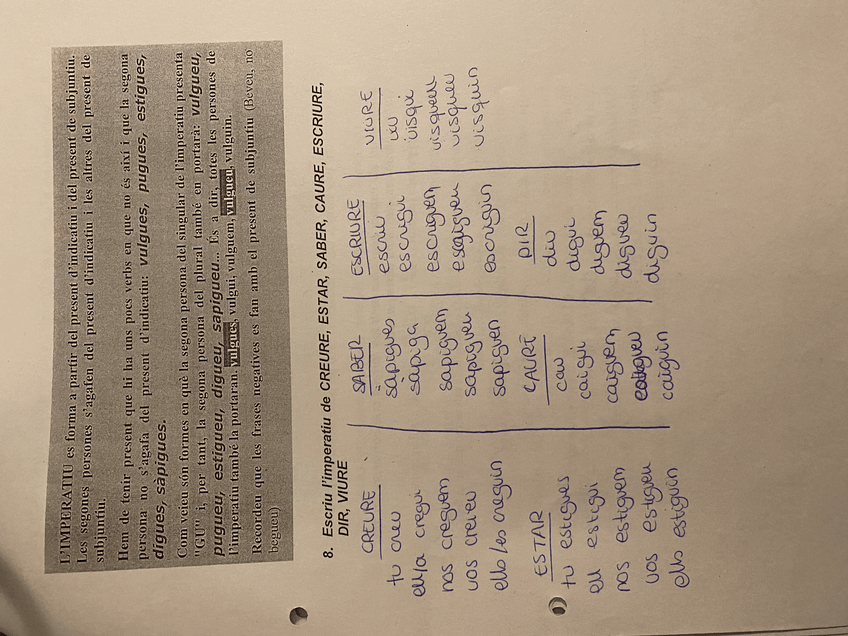 L'IMPERATIU es forma a partir del present d'indicatiu i del present de subjuntiu.
Les segones persones s'agafen del present d'indicatiu i les altres del present de
subjuntiu.
Hem de tenir present que hi ha uns pocs verbs en que no és així i que la segona
persona no s'agafa del present d'indicatiu: vulgues, pugues, estigues,
digues, sàpigues.
Com veieu són formes en què la segona persona del singular de l'imperatiu presenta
"GU" i, per tant, la segona persona del plural també en portarà: vulgueu,
pugueu, estigueu, digueu, sapigueu... És a dir, totes les persones de
l'imperatiu també la portaran. vulgues, vulgui, vulguem, vulgueu, vulguin.
Recordeu que les frases negatives es fan amb el present de subjuntiu (Beveu, no
begueu)
8. Escriu l'imperatiu de CREURE, ESTAR, SABER, CAURE, ESCRIURE,
DIR, VIURE
CREURE
tu creu
ell/a cregui
nos creguem
vos creieu
ells/es creguin
SABER
sàpigues
sàpiga
sapiguem
sapigueu
sapiguen
ESCRIURE
escriu
escrigui
escriguem
escrigueu
escriguin
VIURE
viu
visqui
visquem
visqueu
visquin
ESTAR
tu estigues
ell estigui
nos estiguem
vos estigueu
ells estiguin
CAURE
cau
caigui
caiguem
caiguin
DIR
diu
digui
diguem
digueu
diguin